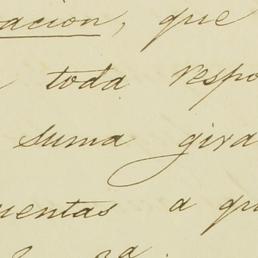 acion, que
toda respo
suma gira
uentas a qu